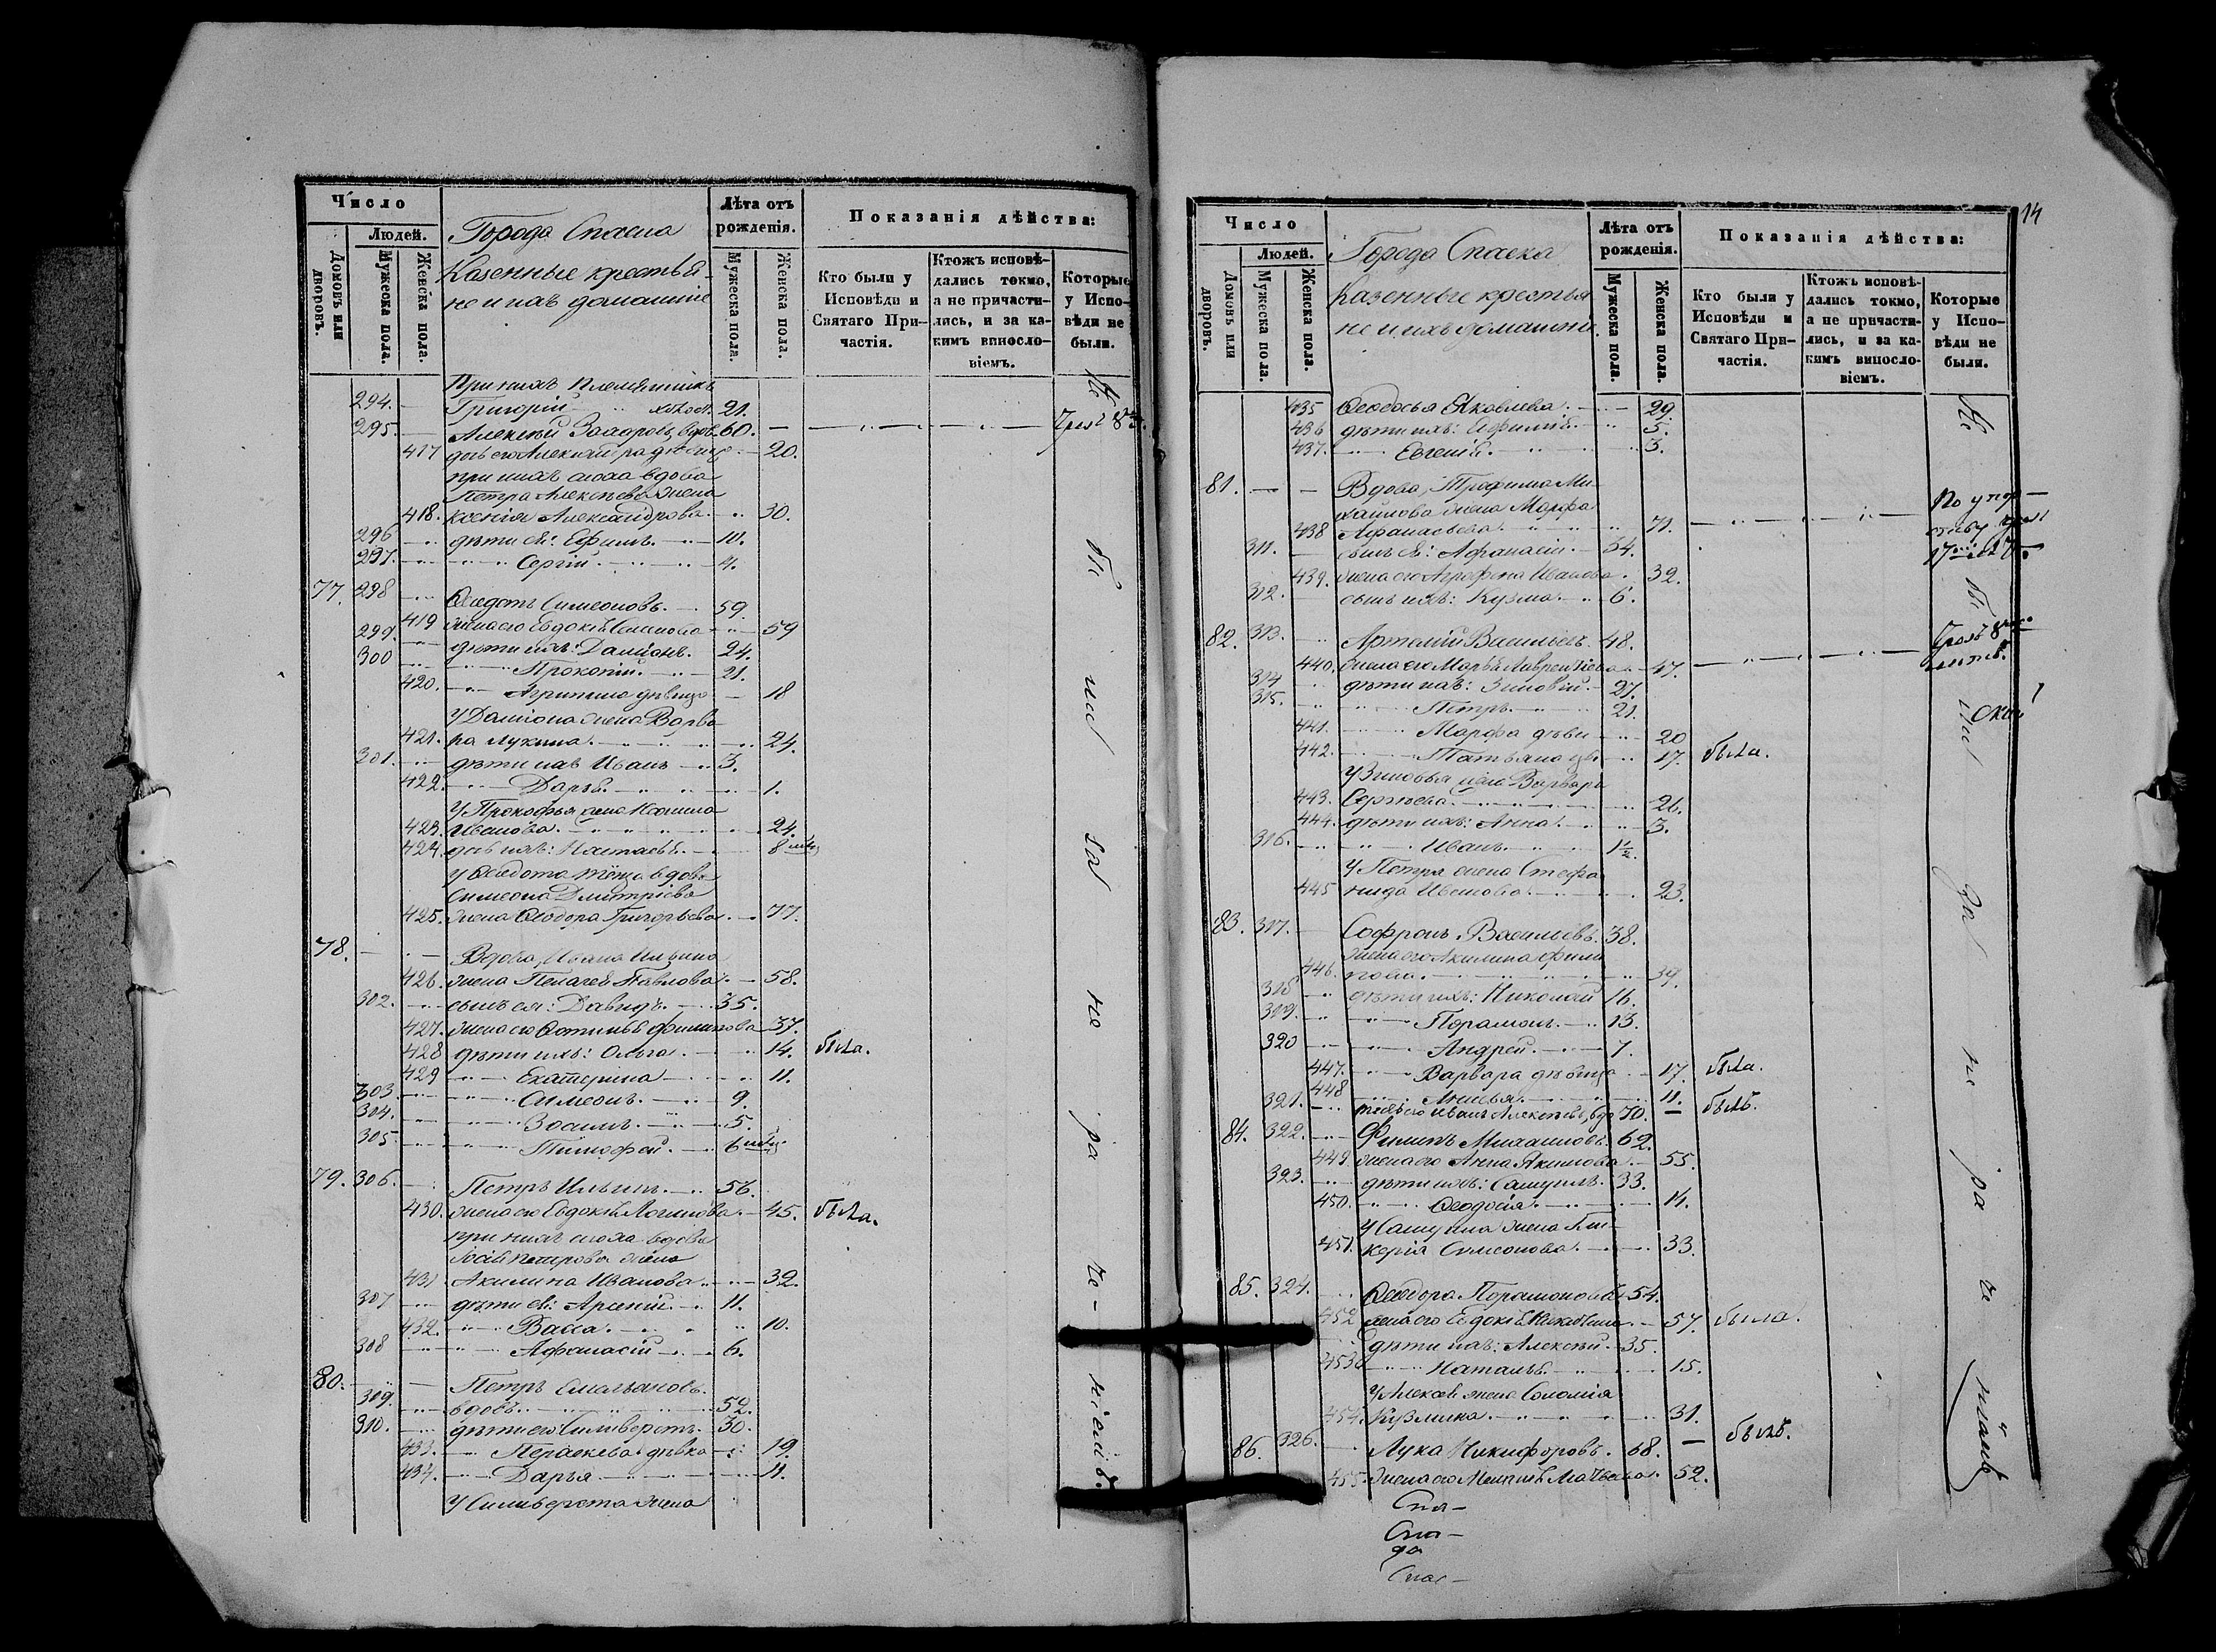 Число
Людей.
Домовъ или дворовъ.
Мужеска пола.
Женска пола.
Города Спасска
Казенные крестья-
не и ихъ домашніе
Лѣта отъ рожденія.
Мужеска пола.
Женска пола.
Показанія дѣйства:
Кто были у Исповѣди и Святаго При-частія.
Ктожъ исповѣ-дались токмо, а не причасти-лись, и за ка-кимъ винносло-віемъ.
Которые у Испо-вѣди не были.
При нихъ племянникъ
294. Григорій холост. 21.
295. Алексѣй Захаровъ, вдовъ 60.
417 20.
при нихъ сноха вдова
Петра Алексѣева жена
418. Ксенія Александрова. 30.
296 дѣти ея: Ефимъ. 10.
297. Сергій. 4.
77. 298 Ѳедотъ Симеоновъ. 59.
419 жена его Евдокія Семенова 59
299. дѣти ихъ: Даміанъ. 24.
300 Прокопій. 21.
420. Агрипина дѣвица 18
У Даміана жена Варва-
421. ра Лукина. 24.
301. дѣти ихъ Иванъ 3.
422. Дарья. 1.
У Прокофья жена
423. Иванова. 24.
424. дочь ихъ: Настасья. 8 мѣс
У Ѳедота тёща вдова
Симеона Дмитріева
425. жена Ѳеодора Григорьева. 77.
78. Вдова, Ивана Ильина
426. жена Пелагея Павлова. 58.
302. сынъ ея: Давидъ. 35.
427. жена его Фотинья Филипова 37.
428 дѣти ихъ: Ольга. 14. была.
429 Екатерина 11.
303. Симеонъ. 9.
304. Зосимъ. 5.
305. Тимофей. 6 мѣс
79. 306. Петръ Ильинъ. 56.
430. жена его Евдокія Логинова. 45. была.
при нихъ сноха вдова
Петрова жена
431 Акилина Иванова. 32.
307 дѣти ея: Арсеній. 11.
432. Васса. 10.
308 Афанасій 6.
80. Петръ Емельяновъ.
309. вдовъ. 52.
310. дѣти его: Сильверстъ. 30.
433. Параскева дѣвка 19.
434. Дарья 11.
У Сильверста жена
Не бы ли за не ра че - ніемъ.
14
Число
Людей.
Домовъ или дворовъ.
Мужеска пола.
Женска пола.
Города Спасска
Казенные крестья
не и ихъ домашніе
Лѣта отъ рожденія.
Мужеска пола.
Женска пола.
Показанія дѣйства:
Кто были у Исповѣди и Святаго При-частія.
Ктожъ исповѣ-дались токмо, а не причасти-лись, и за ка-кимъ винносло-віемъ.
Которые у Испо-вѣди не были.
435 Ѳеодосья Яковлева. 29.
436 дѣти ихъ: 5.
437. Евгенія. 3.
81. Вдова, Трофима Ми-
хайлова жена Марфа
438 Афанасьева. 71.
311. сынъ ея: Афанасій. 34.
439. жена его Агрофена Иванова. 32.
312. сынъ ихъ: Кузма. 6.
82. 313. Артемій Васильевъ. 48.
440. жена его Марья Лаврентіева 47.
314 дѣти ихъ: Зиновій. 27.
315. Петръ. 21.
441. Марфа дѣви 20
442. Татьяна дѣ 17. была.
У Зиновья жена Варвара
443. Сергѣева. 26.
444. дѣти ихъ: Анна. 3.
316. Иванъ. 1½.
У Петра жена Стефа
445 нида Иванова. 23.
83. 317. Софронъ Васильевъ. 38.
жена его Акилина Фили
446. пова. 39.
318 дѣти ихъ: Николай 16.
319. Парамонъ. 13.
320 Андрей. 7.
447. Варвара дѣвица 17. была.
448 Анисья. 11.
321. тесть его Иванъ Алексѣевъ, вдо 70. былъ.
84. 322. Филипъ Михаиловъ. 62.
449. жена его Анна Акимова. 55.
323. дѣти ихъ: Самуилъ. 33.
450. Ѳеодосія. 14.
У Самуила жена Гли-
451. керія Симеонова. 33.
85. 324. Ѳеодоръ Парамоновъ 54.
452 жена его Евдокія 57. была.
дѣти ихъ: Алексѣй. 35.
453 Наталья. 15.
У Алексѣя жена Соломія
454. Кузмина. 31.
86. 326. Лука Никифоровъ. 68. былъ.
455. жена его 52.
Не бы ли за не ра че ніемъ
Спа-
Спа-
да
Спас-